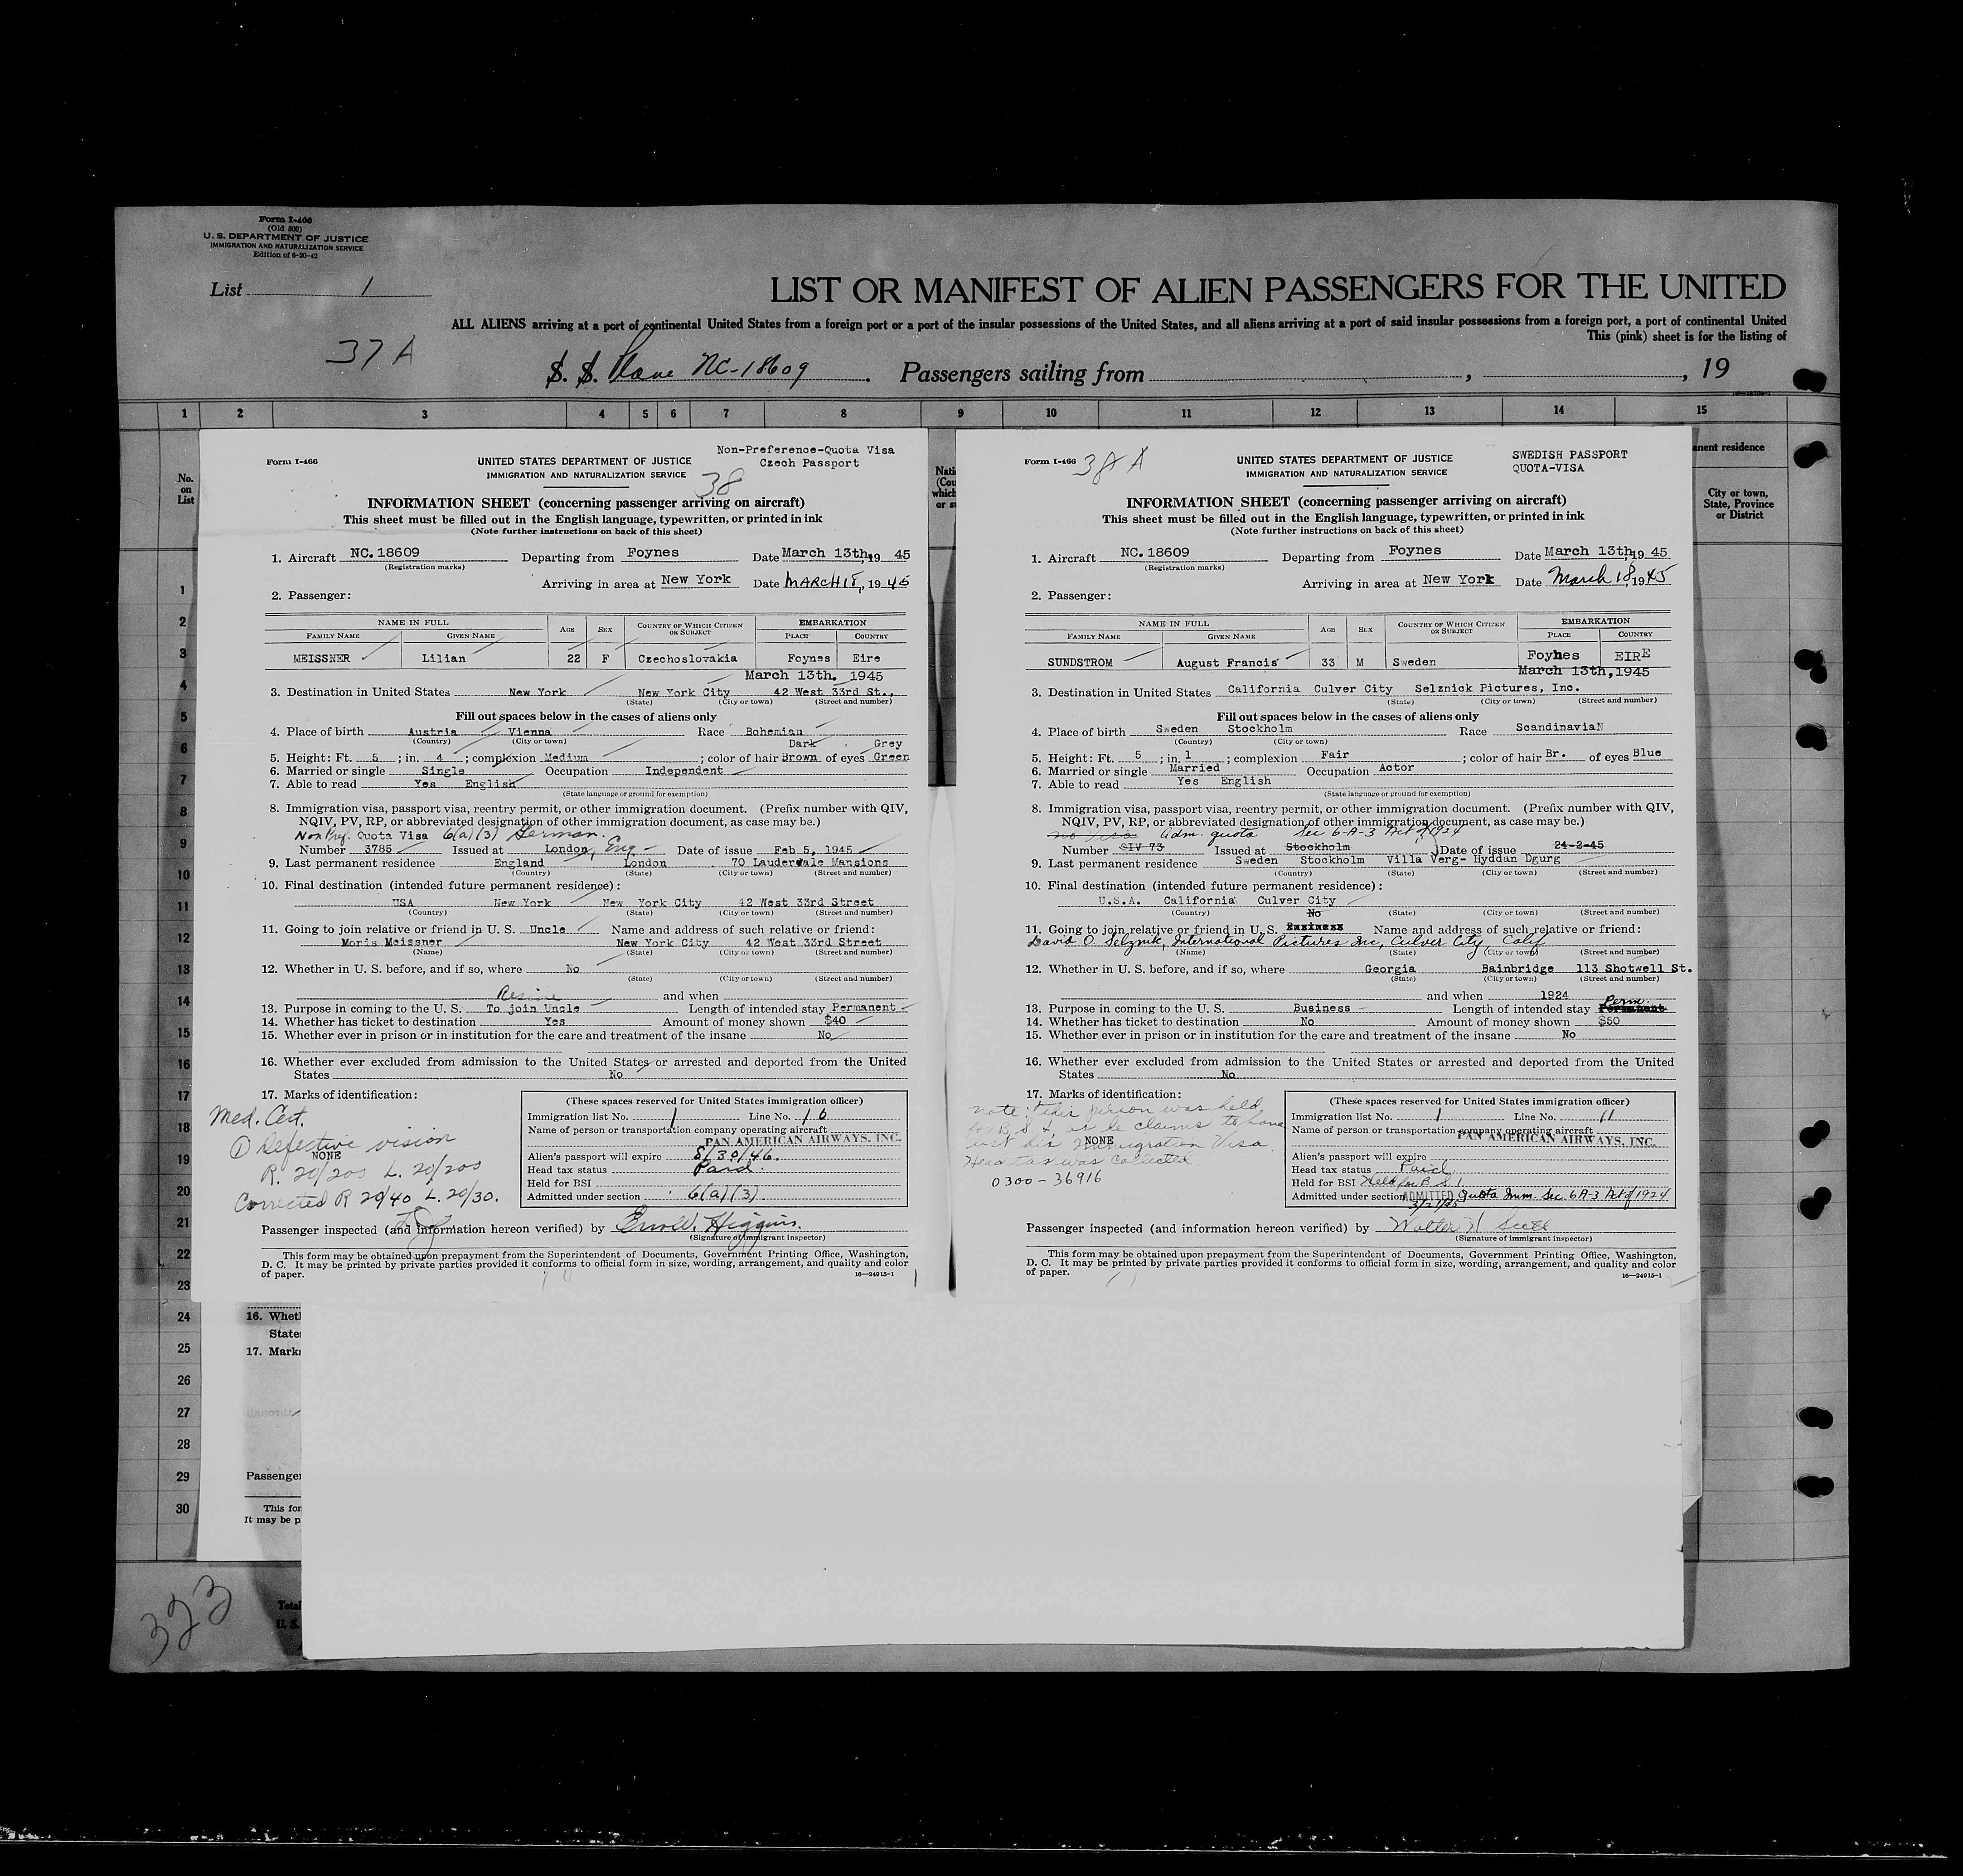 Form I-466
(Old 500)
U. S. DEPARTMENT OF JUSTICE
IMMIGRATION AND NATURALIZATION SERVICE
Edition of 6-20-42
List 1
LIST OR MANIFEST OF ALIEN PASSENGERS FOR THE UNITED
ALL ALIENS arriving at a port of continental United States from a foreign port or a port of the insular possessions of the United States, and all aliens arriving at a port of said insular possessions from a foreign port, a port of continental United
This (pink) sheet is for the listing of
37 A
S. S. Plane NC-18609 . Passengers sailing from , , 19
1 2 3 4 5 6 7 8 9 10 11 12 13 14 15
No.
on
List
1
2
3
4
5
6
7
8
9
10
11
12
13
14
15
16
17
18
19
20
21
22
23
24
25
26
27
28
29
30
Form I-466
UNITED STATES DEPARTMENT OF JUSTICE
IMMIGRATION AND NATURALIZATION SERVICE
Non-Preference-Quota Visa
Czech Passport
38
INFORMATION SHEET (concerning passenger arriving on aircraft)
This sheet must be filled out in the English language, typewritten, or printed in ink
(Note further instructions on back of this sheet)
1. Aircraft NC.18609 Departing from Foynes Date March 13th, 19 45
(Registration marks)
Arriving in area at New York Date MARCH 18, 19 45
2. Passenger:
NAME IN FULL AGE SEX COUNTRY OF WHICH CITIZEN OR SUBJECT EMBARKATION
FAMILY NAME GIVEN NAME PLACE COUNTRY
MEISSNER Lilian 22 F Czechoslovakia Foynes Eire
March 13th. 1945
3. Destination in United States New York New York City 42 West 33rd St.,
(State) (City or town) (Street and number)
Fill out spaces below in the cases of aliens only
4. Place of birth Austria Vienna Race Bohemian
(Country) (City or town) Dark Grey
5. Height: Ft. 5 ; in. 4 ; complexion Medium ; color of hair Brown of eyes Green
6. Married or single Single Occupation Independent
7. Able to read Yes English
(State language or ground for exemption)
8. Immigration visa, passport visa, reentry permit, or other immigration document. (Prefix number with QIV,
NQIV, PV, RP, or abbreviated designation of other immigration document, as case may be.)
Non Pref. Quota Visa 6(a)(3) German.
Number 3785 Issued at London, Eng Date of issue Feb 5, 1945
9. Last permanent residence England London 70 Lauderdale Mansions
(Country) (State) (City or town) (Street and number)
10. Final destination (intended future permanent residence):
USA New York New York City 42 West 33rd Street
(Country) (State) (City or town) (Street and number)
11. Going to join relative or friend in U. S. Uncle Name and address of such relative or friend:
Moris Meissner New York City 42 West 33rd Street
(Name) (State) (City or town) (Street and number)
12. Whether in U. S. before, and if so, where No
(State) (City or town) (Street and number)
Reside and when
13. Purpose in coming to the U. S. To join Uncle Length of intended stay Permanent
14. Whether has ticket to destination Yes Amount of money shown $40
15. Whether ever in prison or in institution for the care and treatment of the insane No
16. Whether ever excluded from admission to the United States or arrested and deported from the United
States No
17. Marks of identification:
Med. Cert.
① Defective vision
NONE
R. 20/200 L. 20/200
Corrected R 20/40 L. 20/30.
(These spaces reserved for United States immigration officer)
Immigration list No. 1 Line No. 10
Name of person or transportation company operating aircraft
PAN AMERICAN AIRWAYS, INC.
Alien's passport will expire 8/30/46.
Head tax status Paid.
Held for BSI
Admitted under section 6(a)(3)
Passenger inspected (and information hereon verified) by Higgins.
(Signature of immigrant inspector)
This form may be obtained upon prepayment from the Superintendent of Documents, Government Printing Office, Washington,
D. C. It may be printed by private parties provided it conforms to official form in size, wording, arrangement, and quality and color
of paper. 16—24915-1
Form I-466
38 A
UNITED STATES DEPARTMENT OF JUSTICE
IMMIGRATION AND NATURALIZATION SERVICE
SWEDISH PASSPORT
QUOTA-VISA
INFORMATION SHEET (concerning passenger arriving on aircraft)
This sheet must be filled out in the English language, typewritten, or printed in ink
(Note further instructions on back of this sheet)
1. Aircraft NC.18609 Departing from Foynes Date March 13th, 19 45
(Registration marks)
Arriving in area at New York Date March 18, 1945
2. Passenger:
NAME IN FULL AGE SEX COUNTRY OF WHICH CITIZEN OR SUBJECT EMBARKATION
FAMILY NAME GIVEN NAME PLACE COUNTRY
SUNDSTROM August Francis 33 M Sweden Foyhes EIRE
March 13th, 1945
3. Destination in United States California Culver City Selznick Pictures, Inc.
(State) (City or town) (Street and number)
Fill out spaces below in the cases of aliens only
4. Place of birth Sweden Stockholm Race ScandinaviaN
(Country) (City or town)
5. Height: Ft. 5 ; in. 1 ; complexion Fair ; color of hair Br. of eyes Blue
6. Married or single Married Occupation Actor
7. Able to read Yes English
(State language or ground for exemption)
8. Immigration visa, passport visa, reentry permit, or other immigration document. (Prefix number with QIV,
NQIV, PV, RP, or abbreviated designation of other immigration document, as case may be.)
no visa Adm. quota Sec 6-A-3 Act of 1924
Number SIV 73 Issued at Stockholm Date of issue 24-2-45
9. Last permanent residence Sweden Stockholm Villa Verg- Hyddan Dgurg
(Country) (State) (City or town) (Street and number)
10. Final destination (intended future permanent residence):
U.S.A. California Culver City
(Country) (State) (City or town) (Street and number)
No
11. Going to join relative or friend in U. S. Business Name and address of such relative or friend:
David O. Selznik, International Pictures Inc, Culver City, Calif
(Name) (State) (City or town) (Street and number)
12. Whether in U. S. before, and if so, where Georgia Bainbridge 113 Shotwell St.
(State) (City or town) (Street and number)
and when 1924
Perm.
13. Purpose in coming to the U. S. Business Length of intended stay Permanent
14. Whether has ticket to destination No Amount of money shown $50
15. Whether ever in prison or in institution for the care and treatment of the insane No
16. Whether ever excluded from admission to the United States or arrested and deported from the United
States No
17. Marks of identification:
note: this person was held
for B S I, as he claims to have
lost his Immigration Visa
NONE
Head tax was collected.
0300-36916
(These spaces reserved for United States immigration officer)
Immigration list No. 1 Line No. 11
Name of person or transportation company operating aircraft
PAN AMERICAN AIRWAYS, INC.
Alien's passport will expire
Head tax status Paid
Held for BSI Held for B S I
Admitted under section ADMITTED Quota Imm. Sec. 6A-3 Act of 1924
Passenger inspected (and information hereon verified) by Walter H Scott
(Signature of immigrant inspector)
This form may be obtained upon prepayment from the Superintendent of Documents, Government Printing Office, Washington,
D. C. It may be printed by private parties provided it conforms to official form in size, wording, arrangement, and quality and color
of paper. 16—24915-1
nent residence
City or town,
State, Province
or District
16. Wheth
State
17. Mark
Passenger
This for
It may be p
Total
U. S.
323